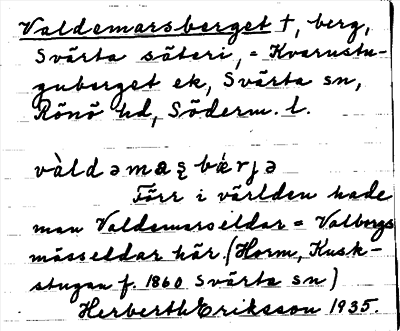 Valdemarsberget †, berg,
Svärta säteri, = Kvarnstu-
guberget ek, Svärta sn,
Rönö hd, Söderm. l.
vàldəmaʂbærjə
Förr i världen hade
man Valdemarseldar = Valborgs
mässeldar här. (Horm, Kusk-
stugan f. 1860 Svärta sn)
Herberth Eriksson 1935.